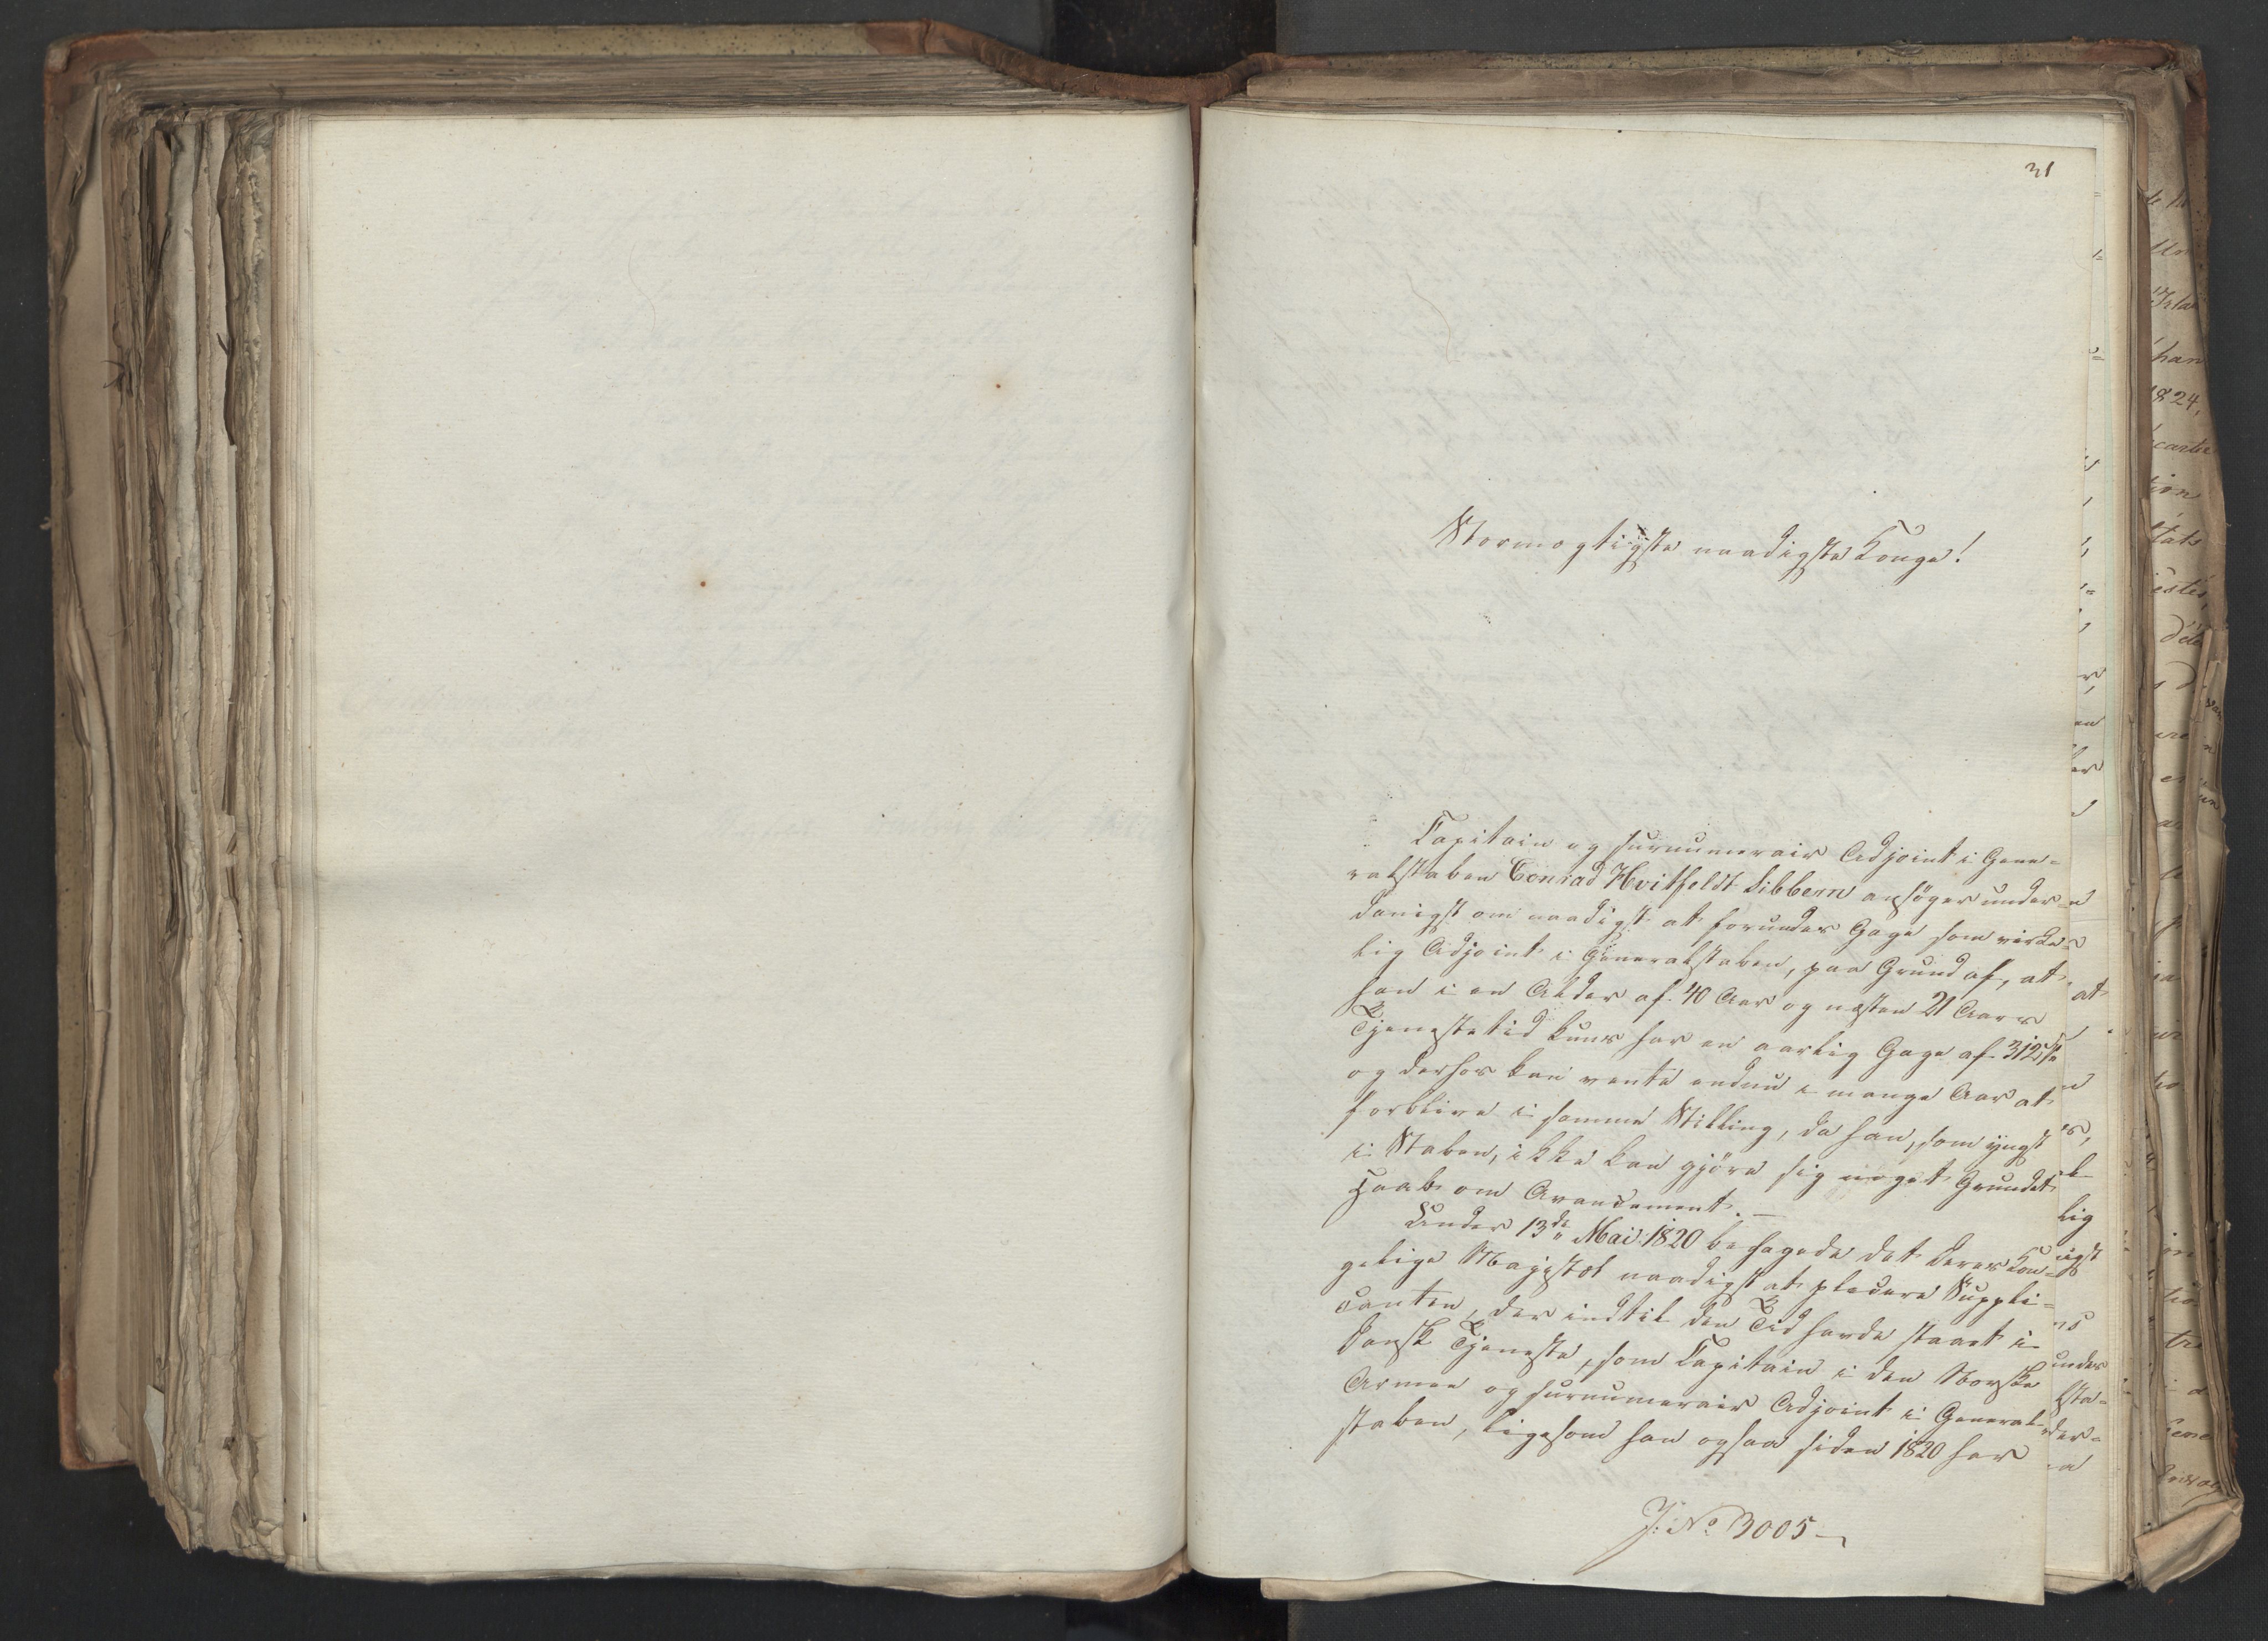 31
Stormægtigste naadigste Konge!
Capitain og surnumerair Adjoint i Gene-
ralstaben Conrad Hvitfeldt Sibbern ansöger under-
danigst om naadigst at forundes Gage som virke-
lig Adjoint i Generalstaben, paa Grund af, at
han i en Alder af 40 Aar og næsten 21 Aars
Tjenestetid kuns har en aarlig Gage af 312 Sp
og derhos kan vente endnu i mange Aar at
forblive i samme Stilling, da han, som yngst
i Staben, ikke kan gjöre sig noget Grundet
Haab om Avancement. —
Under 13de Mai 1820 behagede det Deres Kon-
gelige Majestæt naadigst at placere Suppli-
canten, der indtil den Tid havde staaet i
Dansk Tjeneste, som Capitain i den Norske
Armee og surnumerair Adjoint i General-
staben, ligesom han ogsaa siden 1820 har
J: No 3005